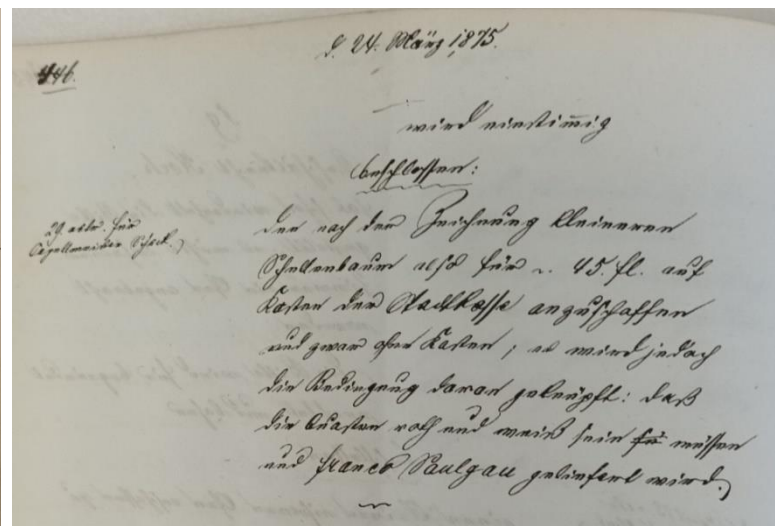 d. 24. März 1875.
446.
wird einstimmig
beschlossen:
den nach der Zeichnung kleineren
Schellenbaum also für c. 45. fl. auf
Kosten der Stadtkasse anzuschaffen
und zwar ohne Kasten; es wird jedoch
die Bedingung daran geknüpft: daß
die Quasten roth und weiß sein müssen
und franco Saulgau geliefert wird.
29. für
Capellmeister